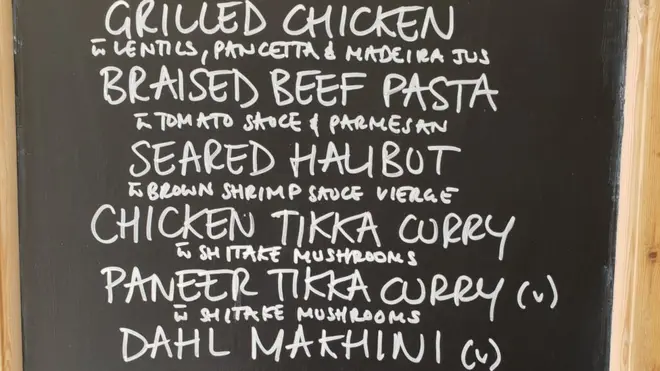 GRILLED CHICKEN
w̄ LENTILS, PANCETTA & MADEIRA JUS
BRAISED BEEF PASTA
w̄ TOMATO SAUCE & PARMESAN
SEARED HALIBUT
w̄ BROWN SHRIMP SAUCE VIERGE
CHICKEN TIKKA CURRY
w̄ SHITAKE MUSHROOMS
PANEER TIKKA CURRY (v)
w̄ SHITAKE MUSHROOMS
DAHL MAKHINI (v)